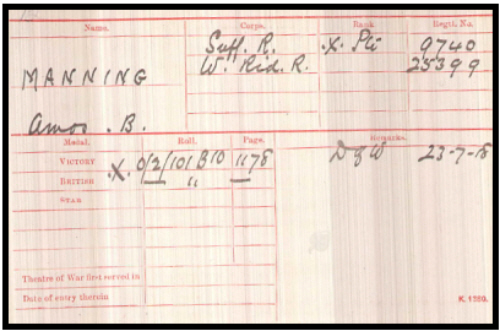 Name. Corps. Rank. Regtl. No.
Suff. R. .X. Pte 9740
W. Rid. R. 25399
MANNING
Amos . B.
Medal. Roll. Page. Remarks.
VICTORY .X. 0/2/101 B10 1178 D of W 23-7-18
BRITISH "
STAR
Theatre of War first served in
Date of entry therein
K. 1380.